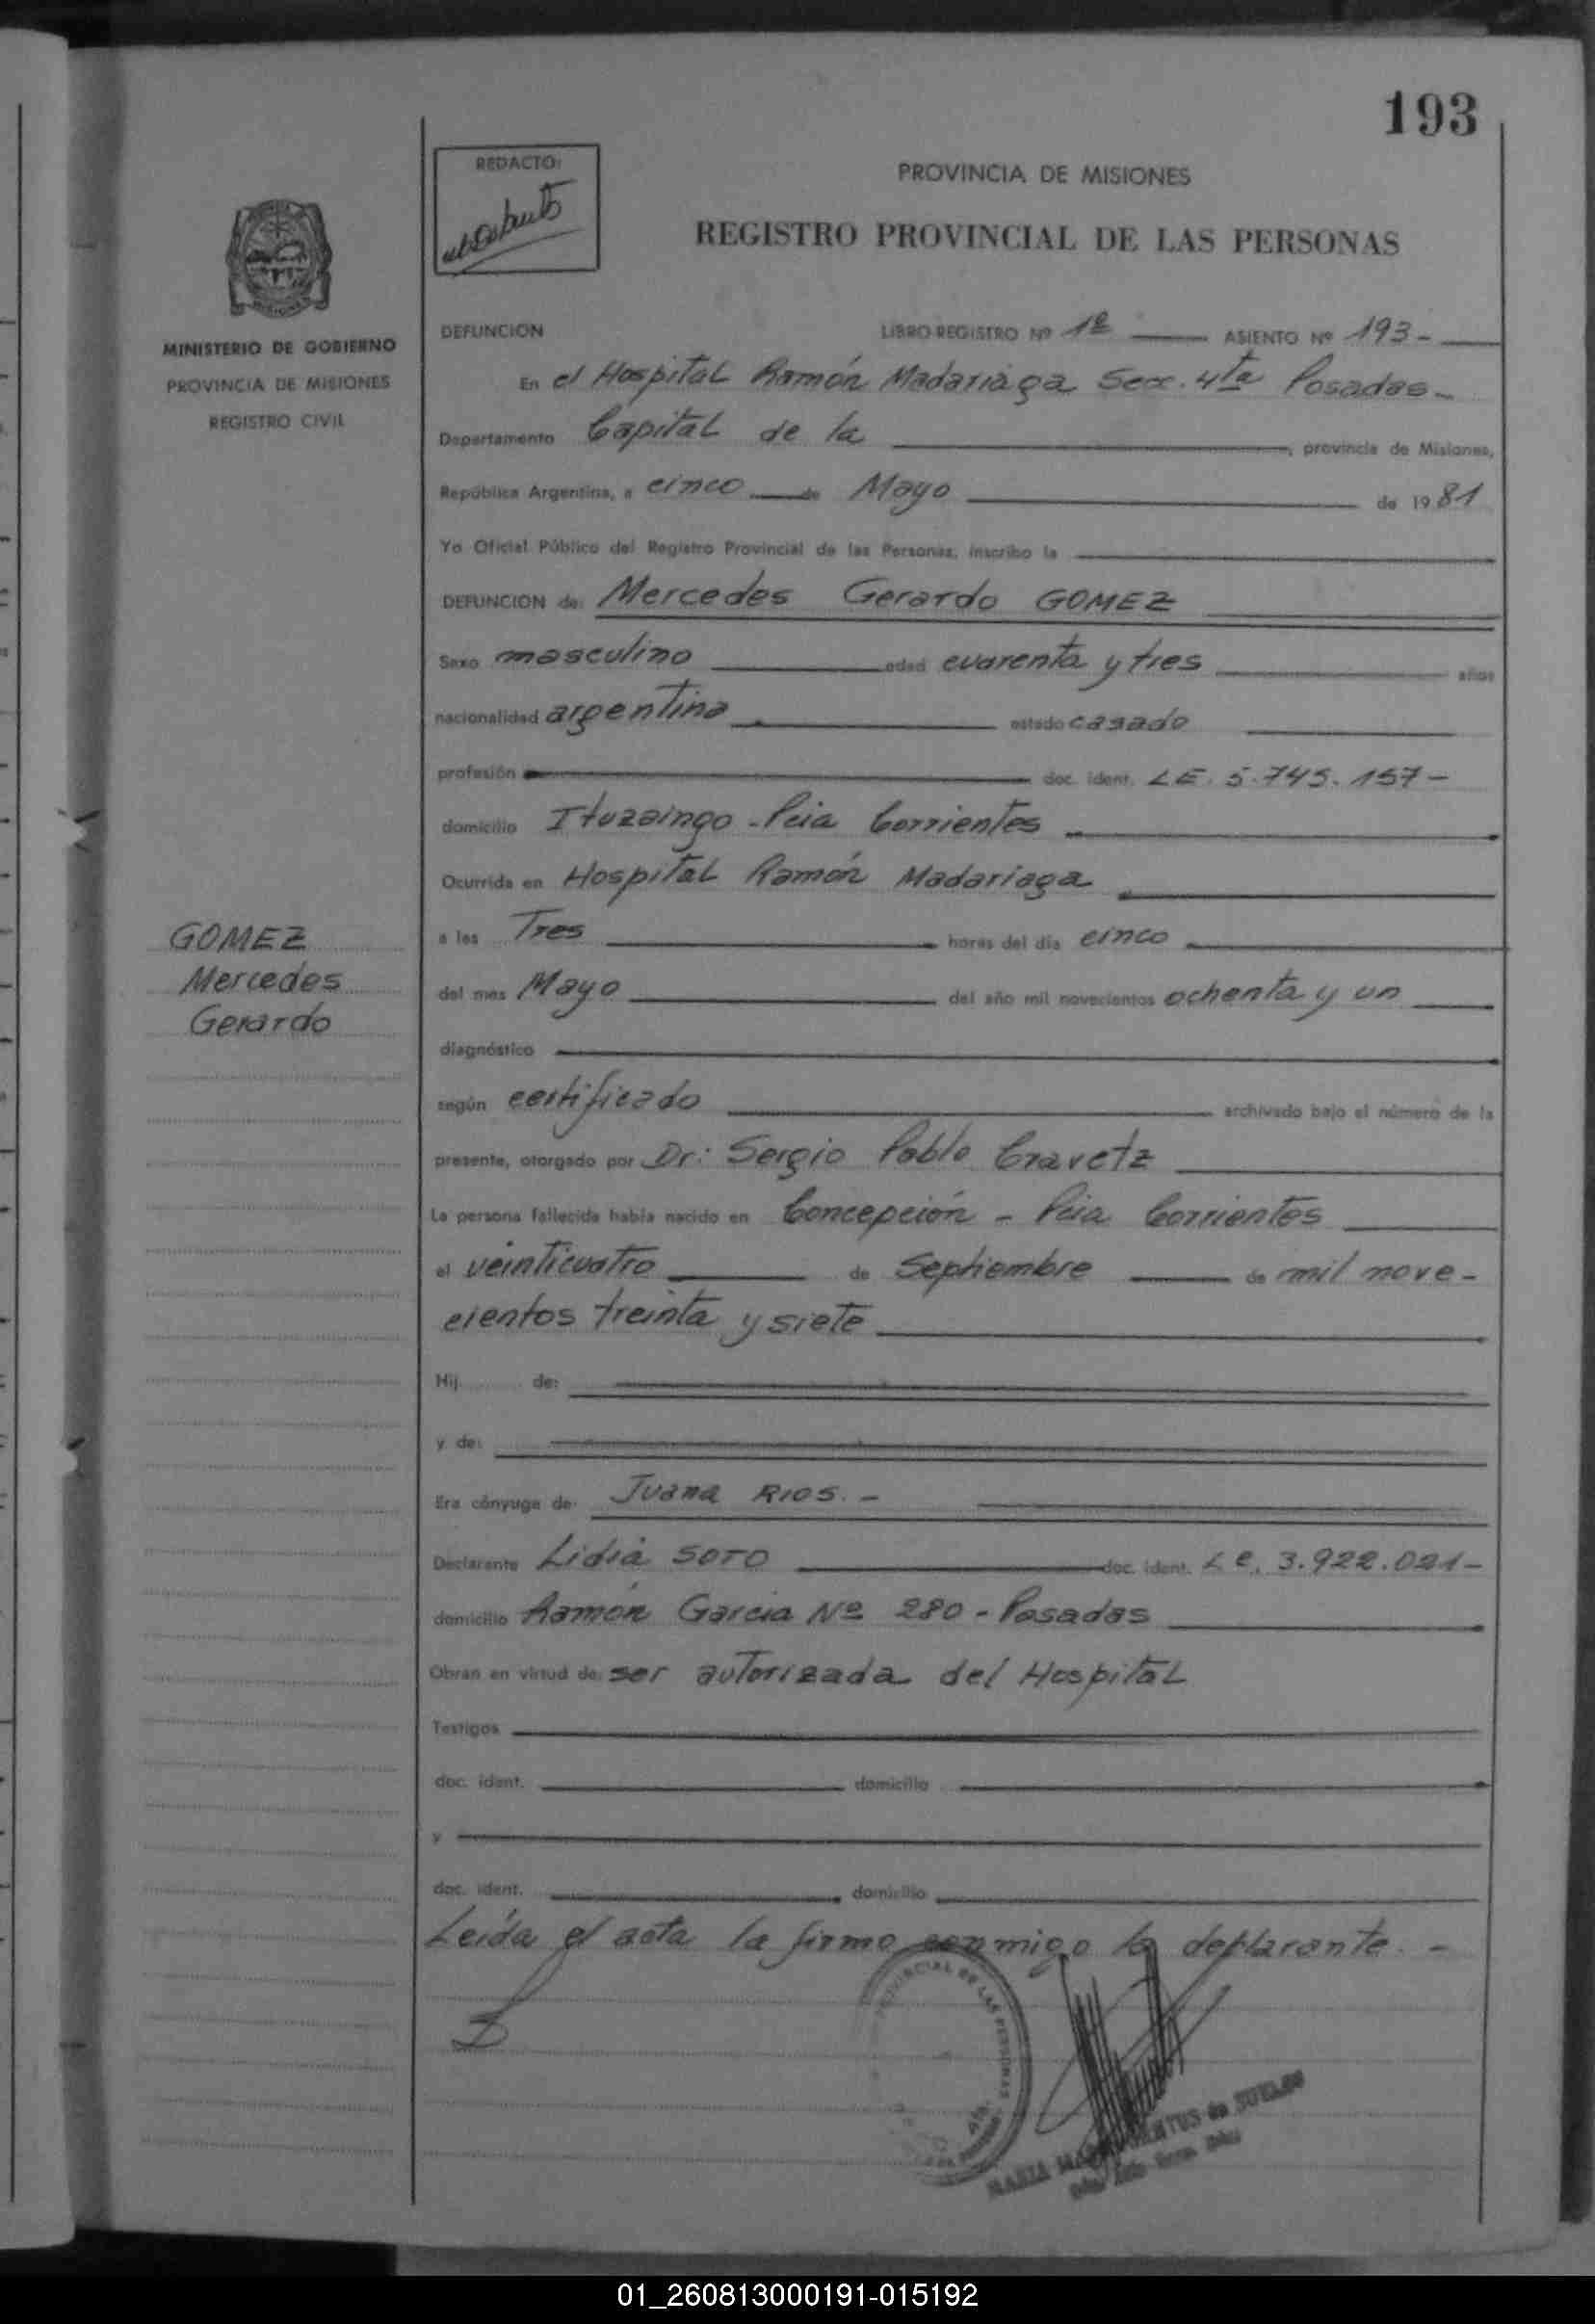 193
REDACTO:
PROVINCIA DE MISIONES
REGISTRO PROVINCIAL DE LAS PERSONAS
MINISTERIO DE GOBIERNO
PROVINCIA DE MISIONES
REGISTRO CIVIL
DEFUNCION LIBRO REGISTRO Nº 1º ASIENTO Nº 193-
En el Hospital Ramón Madariaga Secc. 4ta Posadas-
Departamento Capital de la, provincia de Misiones,
República Argentina, a cinco de Mayo de 1981
Yo Oficial Público del Registro Provincial de las Personas, inscribo la
DEFUNCION de: Mercedes Gerardo GOMEZ
Sexo masculino edad cuarenta y tres años
nacionalidad argentina estado casado
profesión doc. ident. LE. 5.745.157-
domicilio Ituzaingo - Pcia Corrientes
Ocurrida en Hospital Ramón Madariaga
a las Tres horas del día cinco
del mes Mayo del año mil novecientos ochenta y un
diagnóstico
según certificado archivado bajo el número de la
presente, otorgado por Dr: Sergio Pablo Cravetz
La persona fallecida había nacido en Concepción - Pcia Corrientes
el veinticuatro de Septiembre de mil nove-
cientos treinta y siete
Hij de:
y de:
Era cónyuge de: Juana RIOS.-
Declarante Lidia SOTO doc. ident. Lc. 3.922.021-
domicilio Ramón Garcia Nº 280 - Posadas
Obran en virtud de: ser autorizada del Hospital
Testigos
doc. ident. domicilio
y
doc. ident. domicilio
Leída el acta la firma conmigo la declarante.-
GOMEZ
Mercedes
Gerardo
PROVINCIAL DE LAS PERSONAS
MARIA de SUELDO
01_260813000191-015192